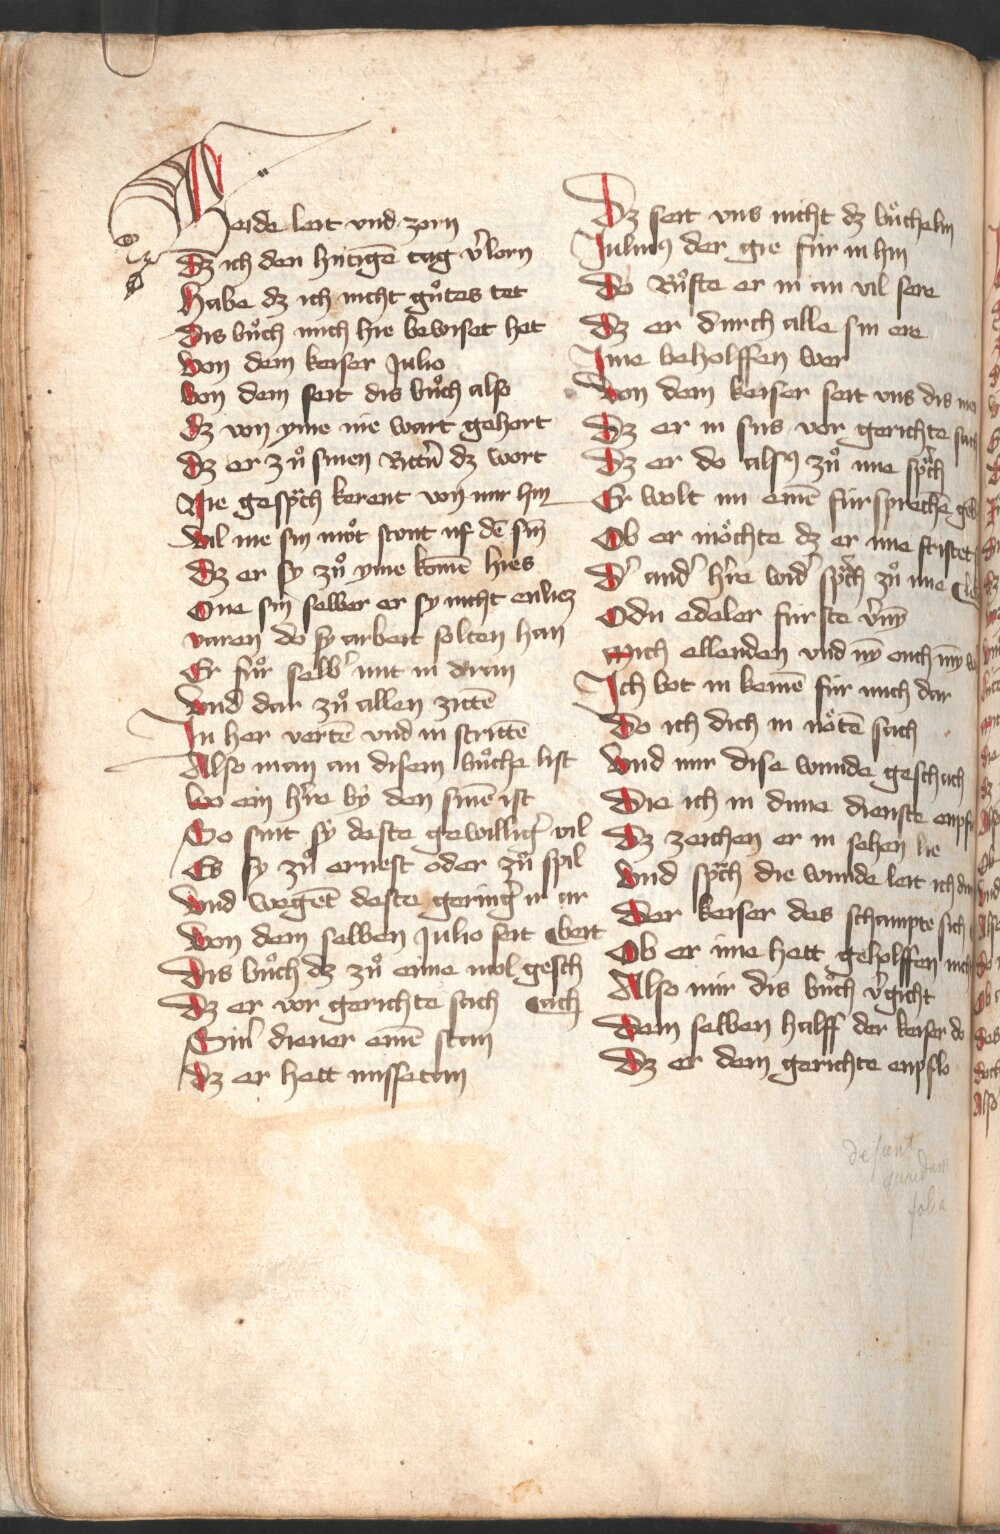 Beide leit vnd zorn
Dz ich den hútigē tag v̓lorn
Habe dz ich nicht gůtes tet
Dis bůch mich hie bewiset het
Von dem keiser Julio
Von dem seit dis bůch also
Dz von yme nie wart gehort
Dz er zů sinen Rittn̄ dz wort
Nie gesp̄ch kerent von mir hin
Wil me sin můt stont uf dē sin
Dz er sy zů yme komē hies
One sin selber er sy nicht enliez
varen do sy arbeit solten han
Er fůr selb̓ mit in dran
Vnd dar zů allen zittē
In her vertē vnd in strittē
Also man an disem bůche list
wo ein h̓re by den sinē ist
So sint sy deste gewillig̓ vil
Es sy zů ernest oder zů spil
Vnd wegēt deste gering̓ ir ar
Von dem selben Julio seit beit
Dis bůch dz zů eime mol gesch
Dz er vor gerichte sach ach
Sin̓ diener einē stan
Dz er hett missetan
Dz seit vns nicht dz bůchelin
Julius der gie fúr in hin
Do Růfte er in an vil sere
Dz er durch alle sin ere
Ime beholffen wer
Von dem keiser seit vns dis
Dz er in sus vor gerichte sach
Dz er do alsus zů ime sp̄ch
Er wolt im einē fúrsprechē geb
Ob er möchte dz er ime fristet
D̓ and̓ h̓re wid̓ sp̄ch zů ime
O du edeler fúrste
mich ellenden vnd
Ich bot in keinē fúr mich dar
Do ich dich in nötē sach
Vnd mir dise wunde geschach
Die ich in dime dienste enpf
Dz zeichen er in sehen lie
Vnd sp̄ch die wunde leit ich
Der keiser des schampte sich
Ob er ime hett geholffen
Also mir dis bůch v̓gicht
Dem selben halff der keiser do
Dz er dem gerichte enpflo
desunt
quaedam
folia